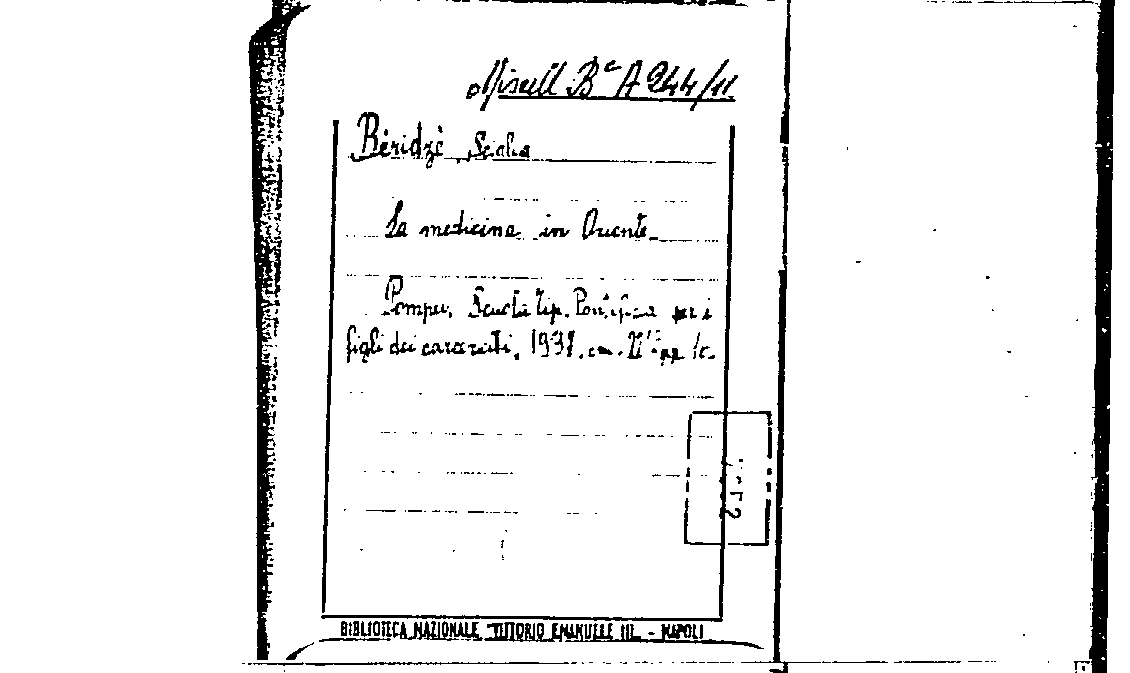 Miscell. Bᵃ A 244/11
Béridzé Scialva
La medicina in Oriente
Pompei, Scuola Tip. Pontificia per i
figli dei carcerati, 1937. cm. pp.
BIBLIOTECA NAZIONALE VITTORIO EMANUELE III - NAPOLI